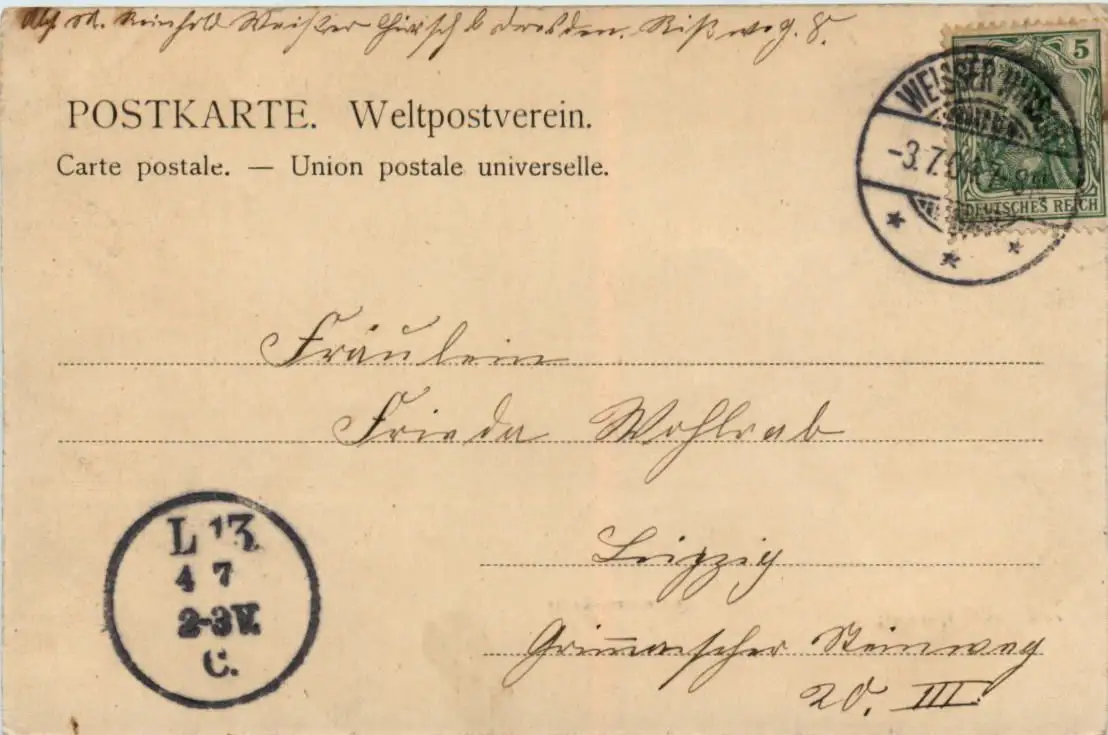 Abs. M. Reinhold Weißer Hirsch b Dresden. Rißweg. 8.
POSTKARTE. Weltpostverein.
Carte postale. — Union postale universelle.
5
DEUTSCHES REICH
WEISSER HIRSCH
-3.7.04. 7-8N.
Fräulein
Frieda Wohlrab
Leipzig
Grimmaischer Steinweg
20. III.
L 13.
4 7
2-3V.
C.